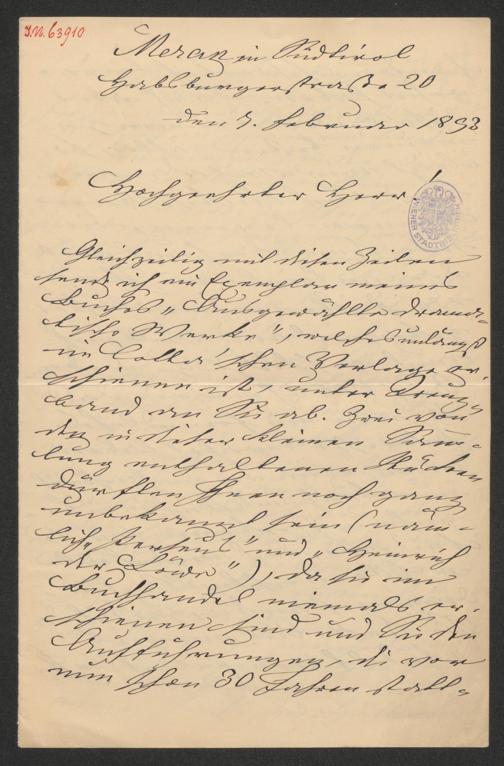 J.N. 63910
Meran in Südtirol
Habsburgerstraße 20
den 7. Februar 1893
Hochgeehrter Herr!
WIENER STADTBIBL
Gleichzeitig mit diesen Zeilen
sende ich ein Exemplar meines
Buches „Ausgewählte drama-
tische Werke", welches unlängst
im Cotta'schen Verlage er-
schienen ist, unter Kreuz-
band an Sie ab. Zwei von
den in dieser kleinen Samm-
lung enthaltenen Stücken
dürften Ihnen noch ganz
unbekannt sein (näm-
lich „Perseus" und „Heinrich
der Löwe"), da sie im
Buchhandel niemals er-
schienen sind und Sie den
Aufführungen, die vor
nun schon 30 Jahren statt-